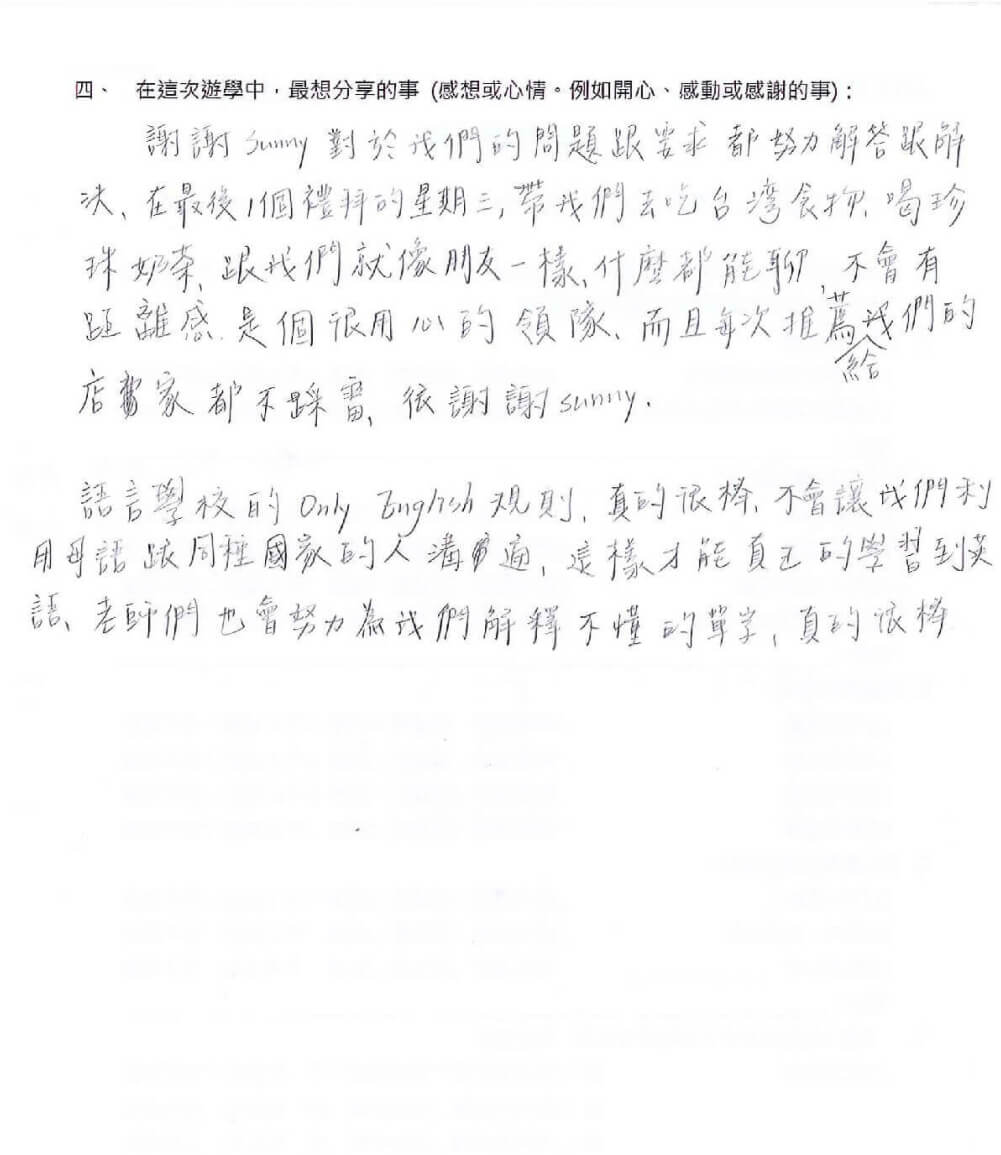 四、 在這次遊學中，最想分享的事 (感想或心情。例如開心、感動或感謝的事)：
謝謝 Sunny 對於我們的問題跟要求都努力解答跟解
決、在最後1個禮拜的星期三,帶我們去吃台灣食物、喝珍
珠奶茶、跟我們就像朋友一樣、什麼都能聊、不會有
距離感、是個很用心的領隊、而且每次推薦給我們的
店家都不踩雷、很謝謝 sunny.
語言學校的 Only English 規則、真的很棒、不會讓我們利
用母語跟同種國家的人溝通、這樣才能真正的學習到英
語、老師們也會努力為我們解釋不懂的單字、真的很棒